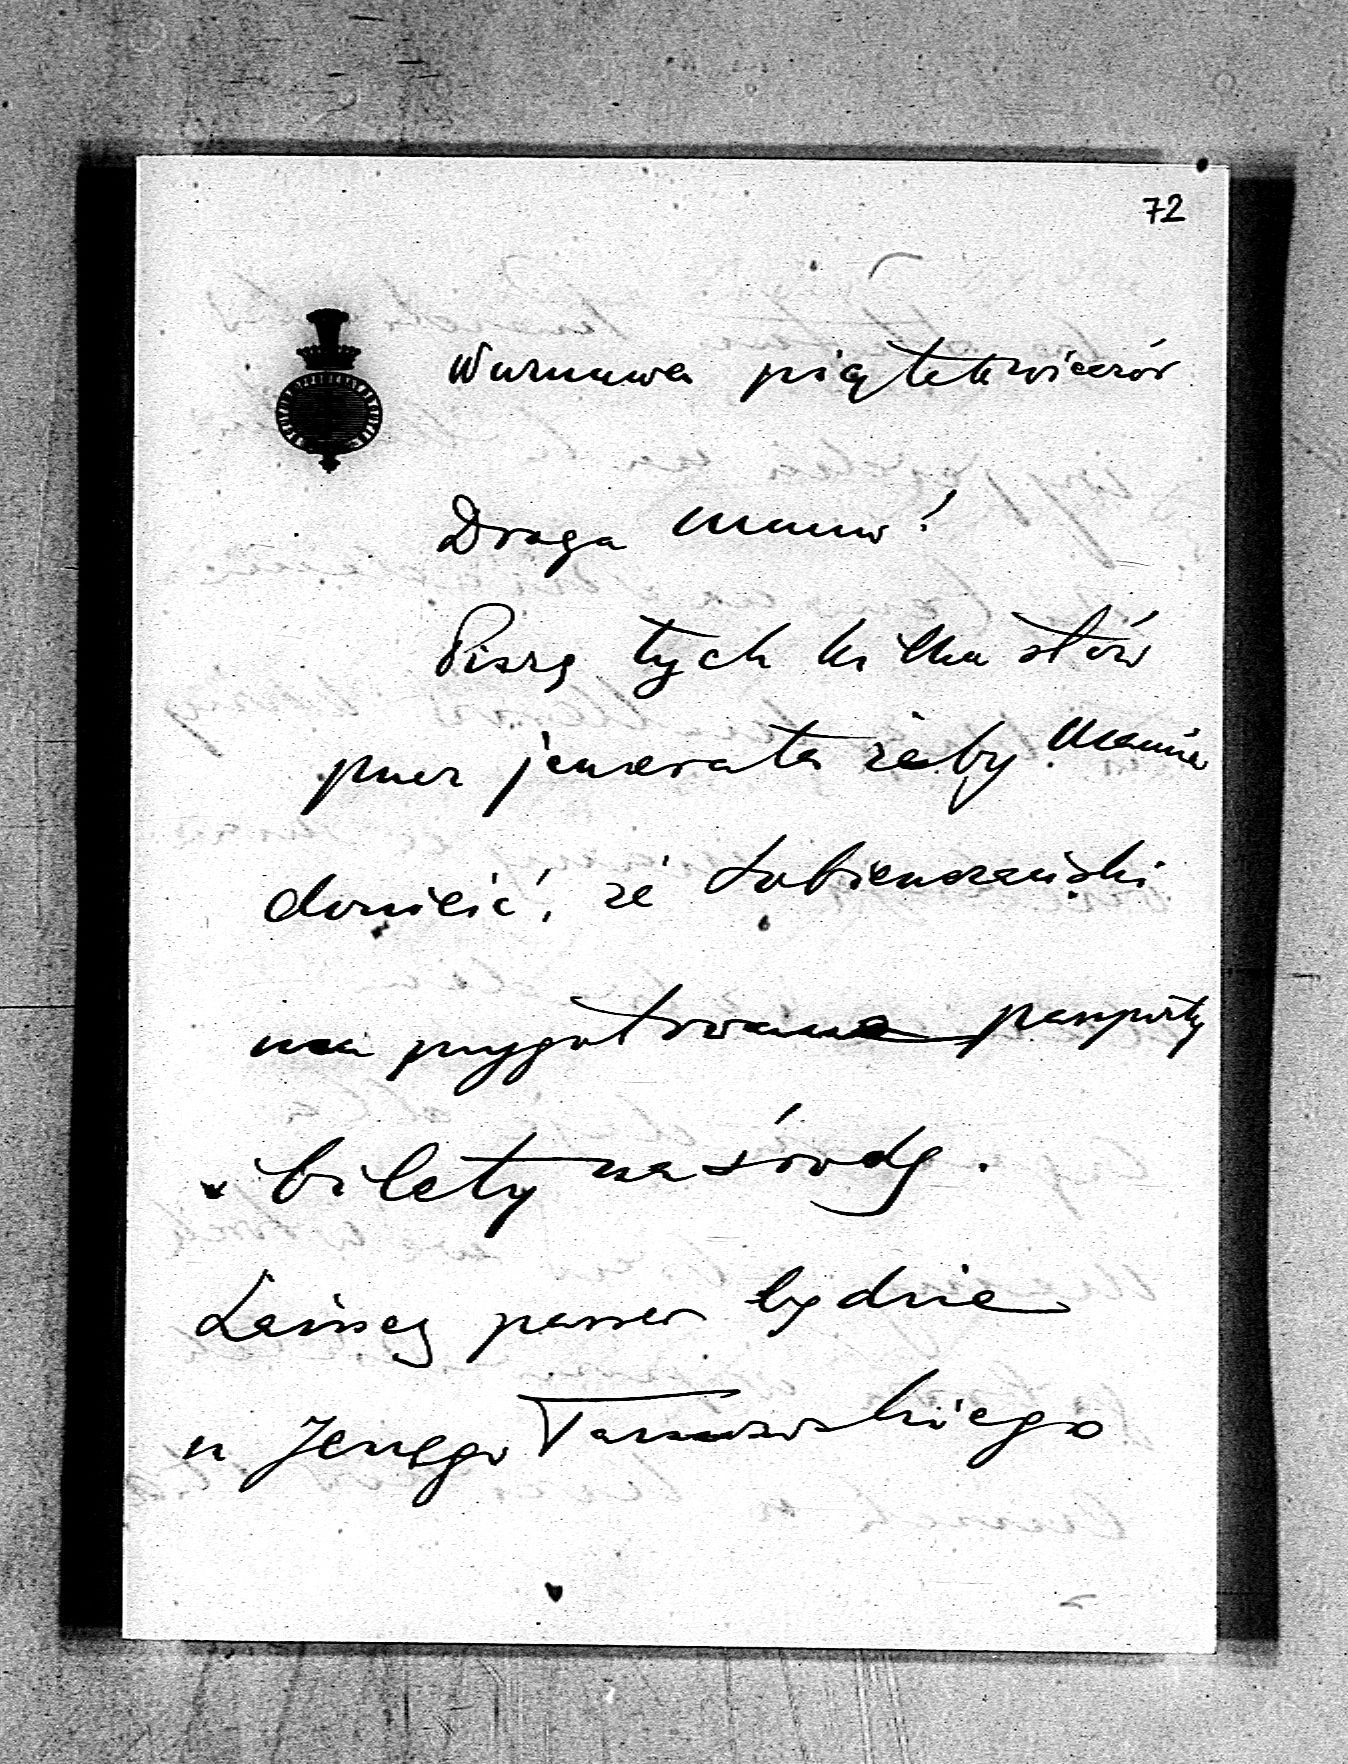 72
Warszawa piątek wieczór
Draga Mamo!
Piszę tych kilka słów
przez jenerała żeby Mamie
donieść, że
ma przygotowane paszporty
i bilety na środę.
Laissez passer będzie
u Jerzego Tarnowskiego